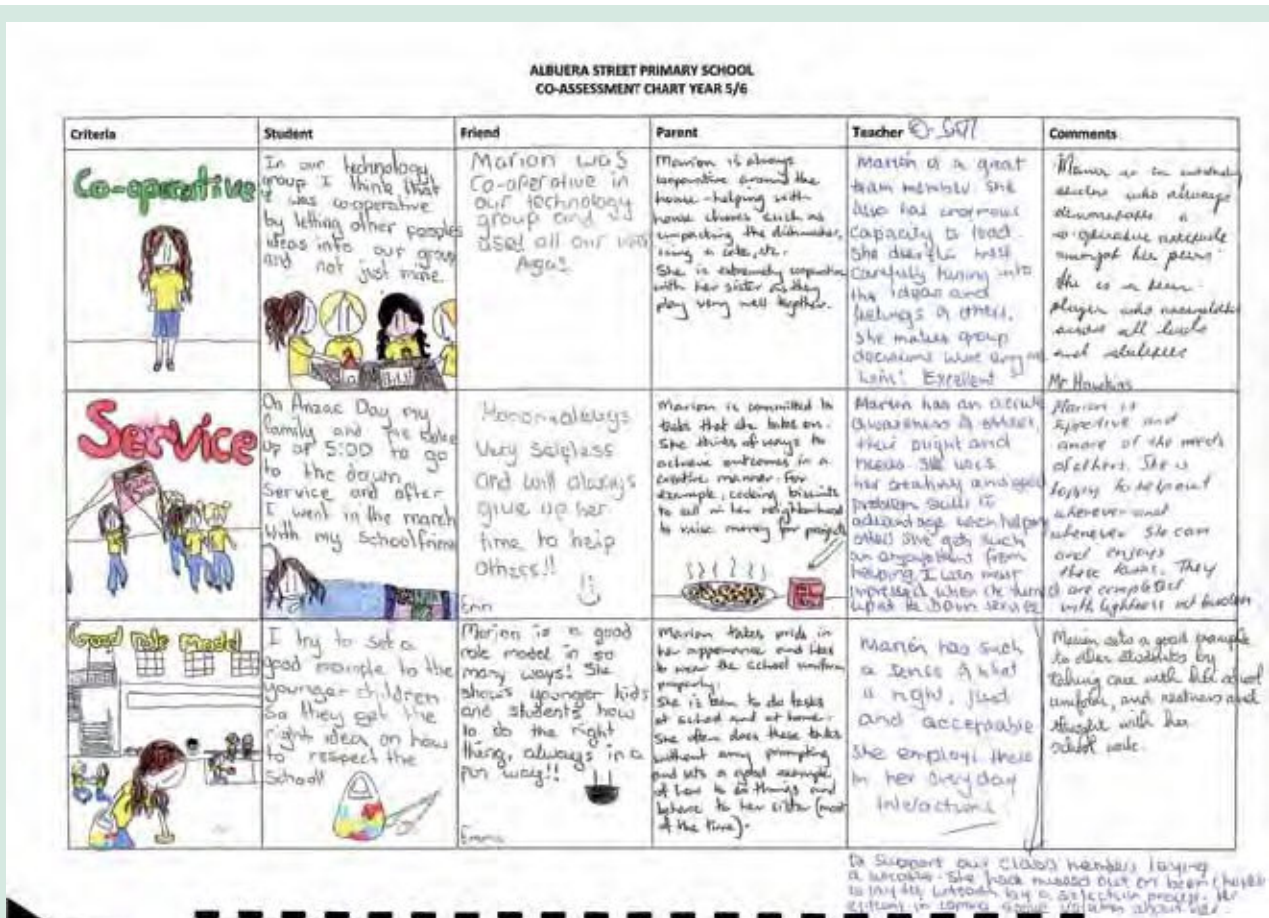 ALBUERA STREET PRIMARY SCHOOL
CO-ASSESSMENT CHART YEAR 5/6
Criteria
Student
Friend
Parent
Teacher
Comments
Co-operative
In our technology
group I think that
I was cooperative
by letting other peoples
ideas into our group
and not just mine.
Marion was
Co-operative in
our technology
group and
used all our
Marion is always
cooperative around the
house - helping with
house chores such as
unpacking the dishwasher,
icing a cake, etc.
She is extremely cooperative
with her sister as they
play very well together.
Marion is a great
team member. She
also has enormous
capacity to lead.
She does this best
carefully tuning into
the ideas and
feelings of others.
She makes group
decisions
Excellent
Marion is an
who always
demonstrates a
co-operative attitude
amongst her peers.
She is a team
player who
across all levels
and
Mr Hawkins
Service
On Anzac Day my
family and me woke
up at 5:00 to go
to the dawn
Service and after
I went in the march
with my school
Marion always
Very Selfless
and will always
give up her
time to help
others!!
Erin
Marion is committed to
tasks that she takes on.
She thinks of ways to
achieve outcomes in a
creative manner. For
example, cooking biscuits
to sell in her neighborhood
to raise money for projects
Marion has an acute
awareness of others,
their plight and
needs. She uses
her creativity and good
problem skills to
advantage when helping
others. She gets such
an enjoyment from
helping. I was most
impressed when she turned
up at the Dawn service
Marion is
and
aware of the needs
of others. She is
happy to help out
wherever and
whenever she can
and enjoys
these tasks. They
are completed
with lightness not burden
Good Role Model
I try to set a
good example to the
younger children
so they get the
right idea on how
to respect the
School!
Marion is a good
role model in so
many ways! She
shows younger kids
and students how
to do the right
thing, always in a
fun way!!
Emma
Marion takes pride in
her appearance and likes
to wear the school uniform
properly.
She is keen to do tasks
at school and at home.
She often does these tasks
without any prompting
and sets a good example
of how to do things and
behave to her sister (most
of the time).
Marion has such
a sense of what
is right, just
and acceptable
she employs these
in her everyday
interactions
Marion sets a good example
to other students by
taking care with her school
uniform, and neatness and
thought with her
school work.
to support our class members laying
a wreath. She had missed out on been
to lay the wreath by a selection process. Her